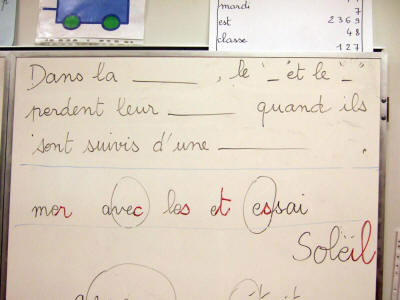 mardi 7
est 2 3 6 9
classe 4 8
1 2 7
Dans la _____ , le "_" et le "_"
perdent leur _____ quand ils
sont suivis d'une _____ .
mer avec les et essai
Soleil